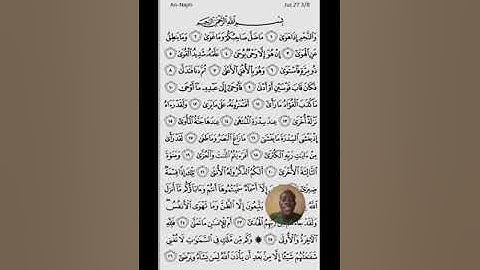 An-Najm Juz 27 3/8
بِسْمِ ٱللَّهِ ٱلرَّحْمَٰنِ ٱلرَّحِيمِ
وَٱلنَّجْمِ إِذَا هَوَىٰ ١ مَا ضَلَّ صَاحِبُكُمْ وَمَا غَوَىٰ ٢ وَمَا يَنطِقُ
عَنِ ٱلْهَوَىٰٓ ٣ إِنْ هُوَ إِلَّا وَحْىٌ يُوحَىٰ ٤ عَلَّمَهُۥ شَدِيدُ ٱلْقُوَىٰ ٥
ذُو مِرَّةٍ فَٱسْتَوَىٰ ٦ وَهُوَ بِٱلْأُفُقِ ٱلْأَعْلَىٰ ٧ ثُمَّ دَنَا فَتَدَلَّىٰ ٨
فَكَانَ قَابَ قَوْسَيْنِ أَوْ أَدْنَىٰ ٩ فَأَوْحَىٰٓ إِلَىٰ عَبْدِهِۦ مَآ أَوْحَىٰ ١٠
مَا كَذَبَ ٱلْفُؤَادُ مَا رَأَىٰٓ ١١ أَفَتُمَٰرُونَهُۥ عَلَىٰ مَا يَرَىٰ ١٢ وَلَقَدْ رَءَاهُ
نَزْلَةً أُخْرَىٰ ١٣ عِندَ سِدْرَةِ ٱلْمُنتَهَىٰ ١٤ عِندَهَا جَنَّةُ ٱلْمَأْوَىٰٓ ١٥
إِذْ يَغْشَى ٱلسِّدْرَةَ مَا يَغْشَىٰ ١٦ مَا زَاغَ ٱلْبَصَرُ وَمَا طَغَىٰ ١٧ لَقَدْ رَأَىٰ
مِنْ ءَايَٰتِ رَبِّهِ ٱلْكُبْرَىٰٓ ١٨ أَفَرَءَيْتُمُ ٱللَّٰتَ وَٱلْعُزَّىٰ ١٩ وَمَنَوٰةَ
ٱلثَّالِثَةَ ٱلْأُخْرَىٰٓ ٢٠ أَلَكُمُ ٱلذَّكَرُ وَلَهُ ٱلْأُنثَىٰ ٢١ تِلْكَ إِذًا قِسْمَةٌ
ضِيزَىٰٓ إِلَّآ أَسْمَآءٌ سَمَّيْتُمُوهَآ أَنتُمْ وَءَابَآؤُكُم مَّآ أَنزَلَ
يَتَّبِعُونَ إِلَّا ٱلظَّنَّ وَمَا تَهْوَى ٱلْأَنفُسُ
وَلَقَدْ جَآءَهُم ٱلْهُدَىٰٓ ٢٣ أَمْ لِلْإِنسَٰنِ مَا تَمَنَّىٰ ٢٤ فَلِلَّهِ
ٱلْءَاخِرَةُ وَٱلْأُولَىٰ ٢٥ ۞ وَكَم مِّن مَّلَكٍ فِى ٱلسَّمَٰوَٰتِ لَا تُغْنِى
شَفَٰعَتُهُمْ شَيْـًٔا إِلَّا مِنۢ بَعْدِ أَن يَأْذَنَ ٱللَّهُ لِمَن يَشَآءُ وَيَرْضَىٰٓ ٢٦